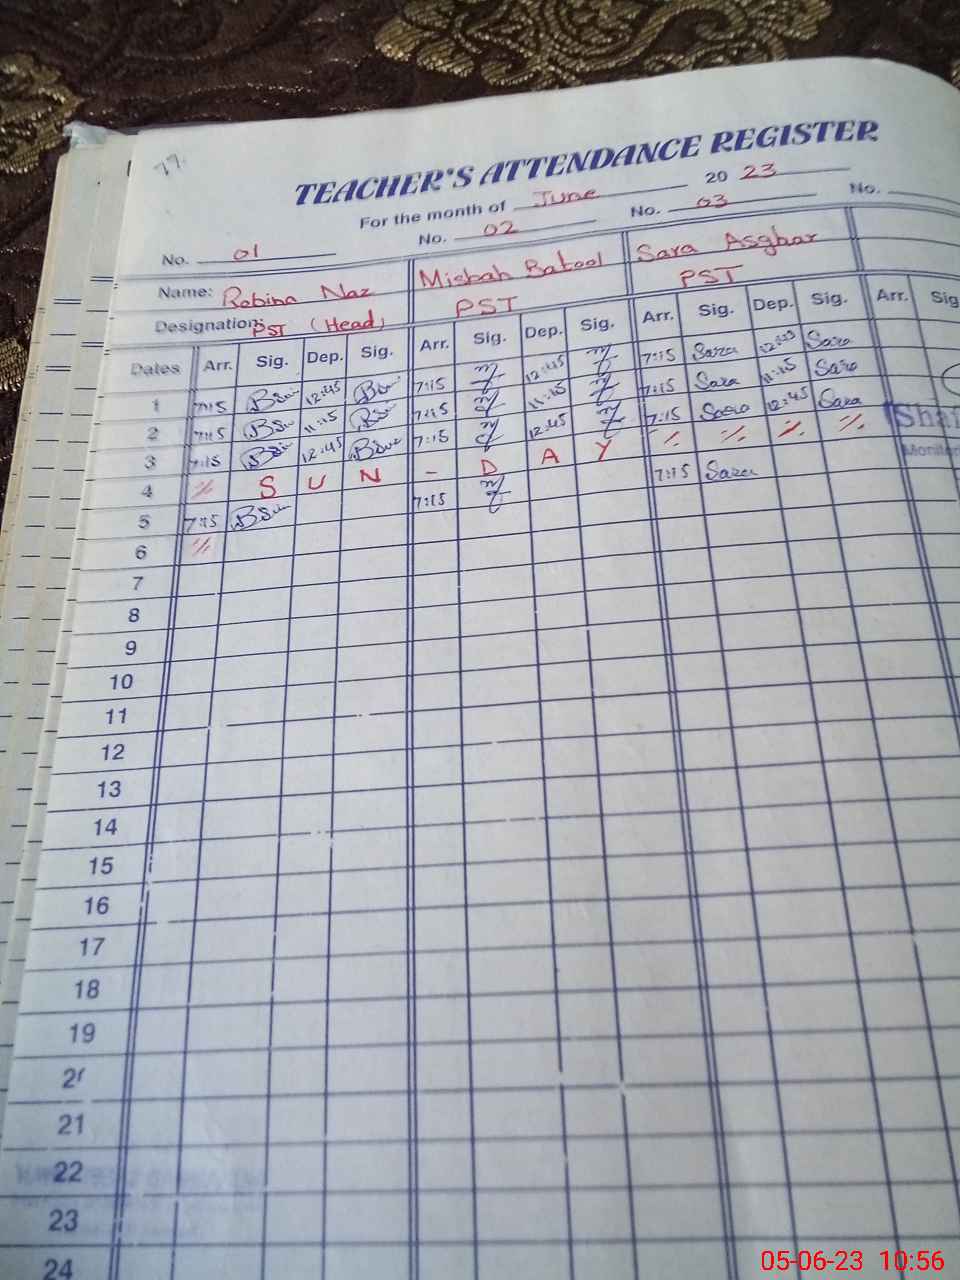 77.
TEACHER'S ATTENDANCE REGISTER
For the month of June 20 23
No. 01 No. 02 No. 03 No.
Name: Robina Naz Misbah Batool Sara Asghar
Designation: PST (Head) PST PST
Dates Arr. Sig. Dep. Sig. Arr. Sig. Dep. Sig. Arr. Sig. Dep. Sig. Arr. Sig
1 7:15 12:45 7:15 12:45 7:15 Sara Sara
2 7:15 11:15 7:15 11:15 7:15 Sara 11:15 Sara
3 7:15 12:45 7:15 12:45 7:15 Sara 12:45 Sara
4 % S U N - D A Y % % % %
5 7:15 7:15 7:15 Sara
6 %
7
8
9
10
11
12
13
14
15
16
17
18
19
20
21
22
23
24
Shaf
Monitor
05-06-23 10:56